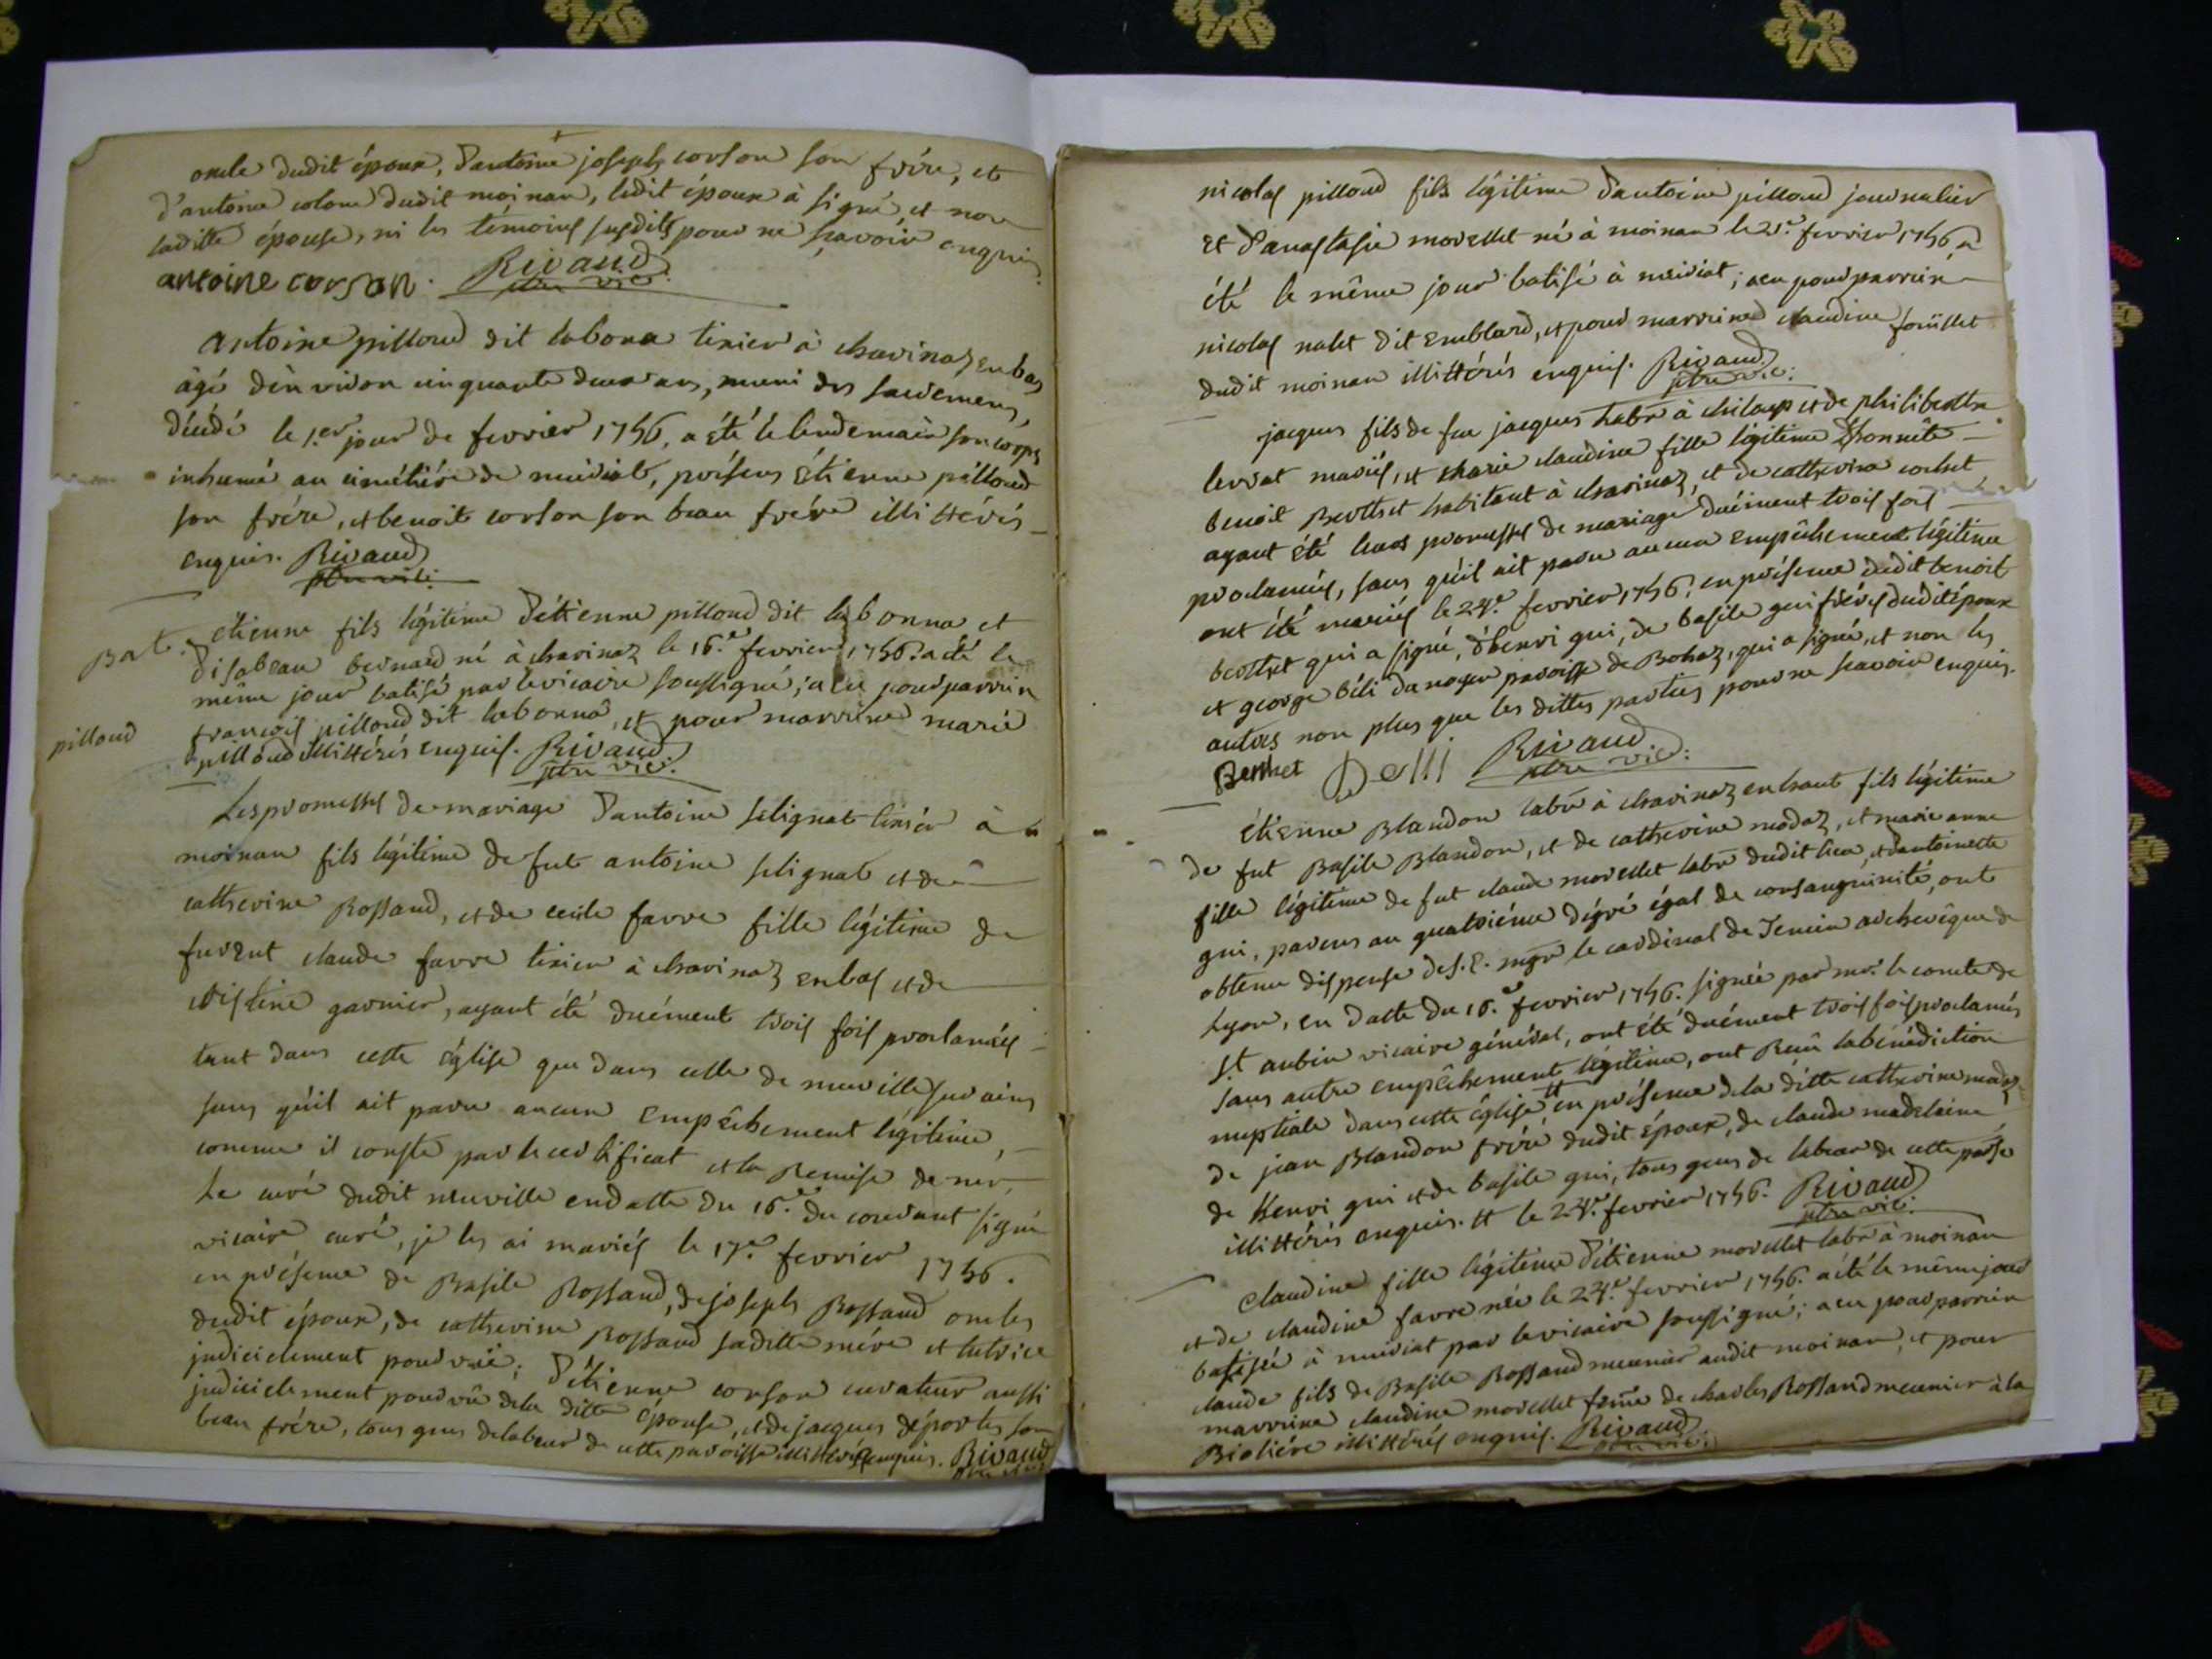 oncle dudit époux, d'antoine joseph corson son frère, et
d'antoine colom dudit moinan, ledit époux à signé et non
laditte épouse, ni les témoins susdits pour ne sçavoir enquis.
antoine corson. Rivaud
ptre vic.
antoine pilloud dit labona tixier à charinaz en bas
âgé d'environ cinquante deux ans, muni des sacremens,
décédé le 1.er jour de fevrier 1756, a été le lendemain son corps
inhumé au cimétière de meiriat, présens étienne pilloud
son frére, et benoit corson son beau frére illittérés
enquis. Rivaud
ptre vic.
Bat.
étienne fils légitime d'étienne pilloud dit labonna et
d'isabeau bernard né à charinaz le 16.e fevrier 1756. a été le
même jour batisé par le vicaire soussigné; a eu pour parrin
françois pilloud dit labonna, et pour marrine marie
pilloud
pilloud illittérés enquis. Rivaud
ptre vic.
Les promesses de mariage d'antoine selignat tixier à
moinan fils légitime de fut antoine selignat et de
catherine Rossand, et de cecile favre fille légitime de
furent claude favre tixier à charinaz en bas et de
cristine garnier, ayant été duément trois fois proclamées
tant dans cette église que dans celle de neuville sur ains
sans qu'il ait paru aucun empêchement légitime,
comme il conste par le certificat et la Remise de mr.
Le curé dudit neuville en datte du 16.e du courant signé
vicaire curé, je les ai mariés le 17.e fevrier 1756.
en présence de Basile Rossand, de joseph Rossand oncles
dudit époux, de catherine Rossand saditte mére et tutrice
judiciclement pourvüe; d'étienne corson curateur aussi
judiciclement pourvû de la ditte épouse, et de jacques déportes son
beau frére, tous gens de labeur de cette paroisse illittérés enquis. Rivaud
ptre vic.
nicolas pilloud fils légitime d'antoine pilloud journalier
et d'anastasie morellet né à moinan le 21.e fevrier 1756 a
été le même jour batisé à meiriat; a eu pour parrin
nicolas nalet dit emblard, et pour marrine claudine foüillet
dudit moinan illittérés enquis. Rivaud
ptre vic.
jacques fils de feu jacques labr à chiloup et de philiberthe
levrat mariés, et marie claudine fille légitime d'honnête
benoit Berthet habitant à charinaz, et de catherine cochet
ayant été leurs promesses de mariage duément trois fois
proclamées, sans qu'il ait paru aucun empêchement légitime
ont été mariés le 24.e fevrier 1756, en présence dudit benoit
berthet qui a signé, d'henri gui, de basile gui fréres dudit époux
et george béli du noyer paroisse de Bohaz, qui a signé, et non les
autres non plus que les dittes parties pour ne scavoir enquis.
Berthet Belli Rivaud
ptre vic.
étienne Blandon labr à charinaz en haut fils légitime
de fut Basile Blandon, et de catherine modaz, et marie anne
fille légitime de fut claude morellet labr dudit lieu, et d'antoinette
gui, parens au quatriéme dégré égal de consanguinité, ont
obtenu dispense de s. E. mgr le cardinal de Tencin archevêque de
Lyon, en datte du 16.e fevrier 1756. signée par mr. le comte de
st. aubin vicaire général, ont été duément trois fois proclamés
sans autre empêchement légitime, ont Reçû la bénédiction
nuptiale dans cette église # en présence de la ditte catherine modaz,
de jean Blandon frére dudit époux, de claude madelaine,
de henri gui et de basile gui, tous gens de labeur de cette parsse
illittérés enquis. # le 24.e fevrier 1756. Rivaud
ptre vic.
claudine fille légitime d'étienne morellet labr à moinan
et de claudine favre née le 24.e fevrier 1756. a été le même jour
batisée à meiriat par le vicaire soussigné; a eu pour parrin
claude fils de Basile Rossand meunier audit moinan, et pour
marrine claudine morellet feme de charles Rossand meunier à la
Bioliére illittérés enquis. Rivaud
ptre vic.